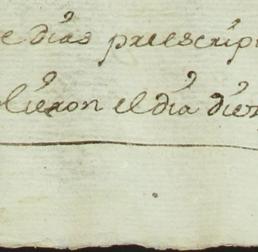 e dias preescrip
lieron el dia diez